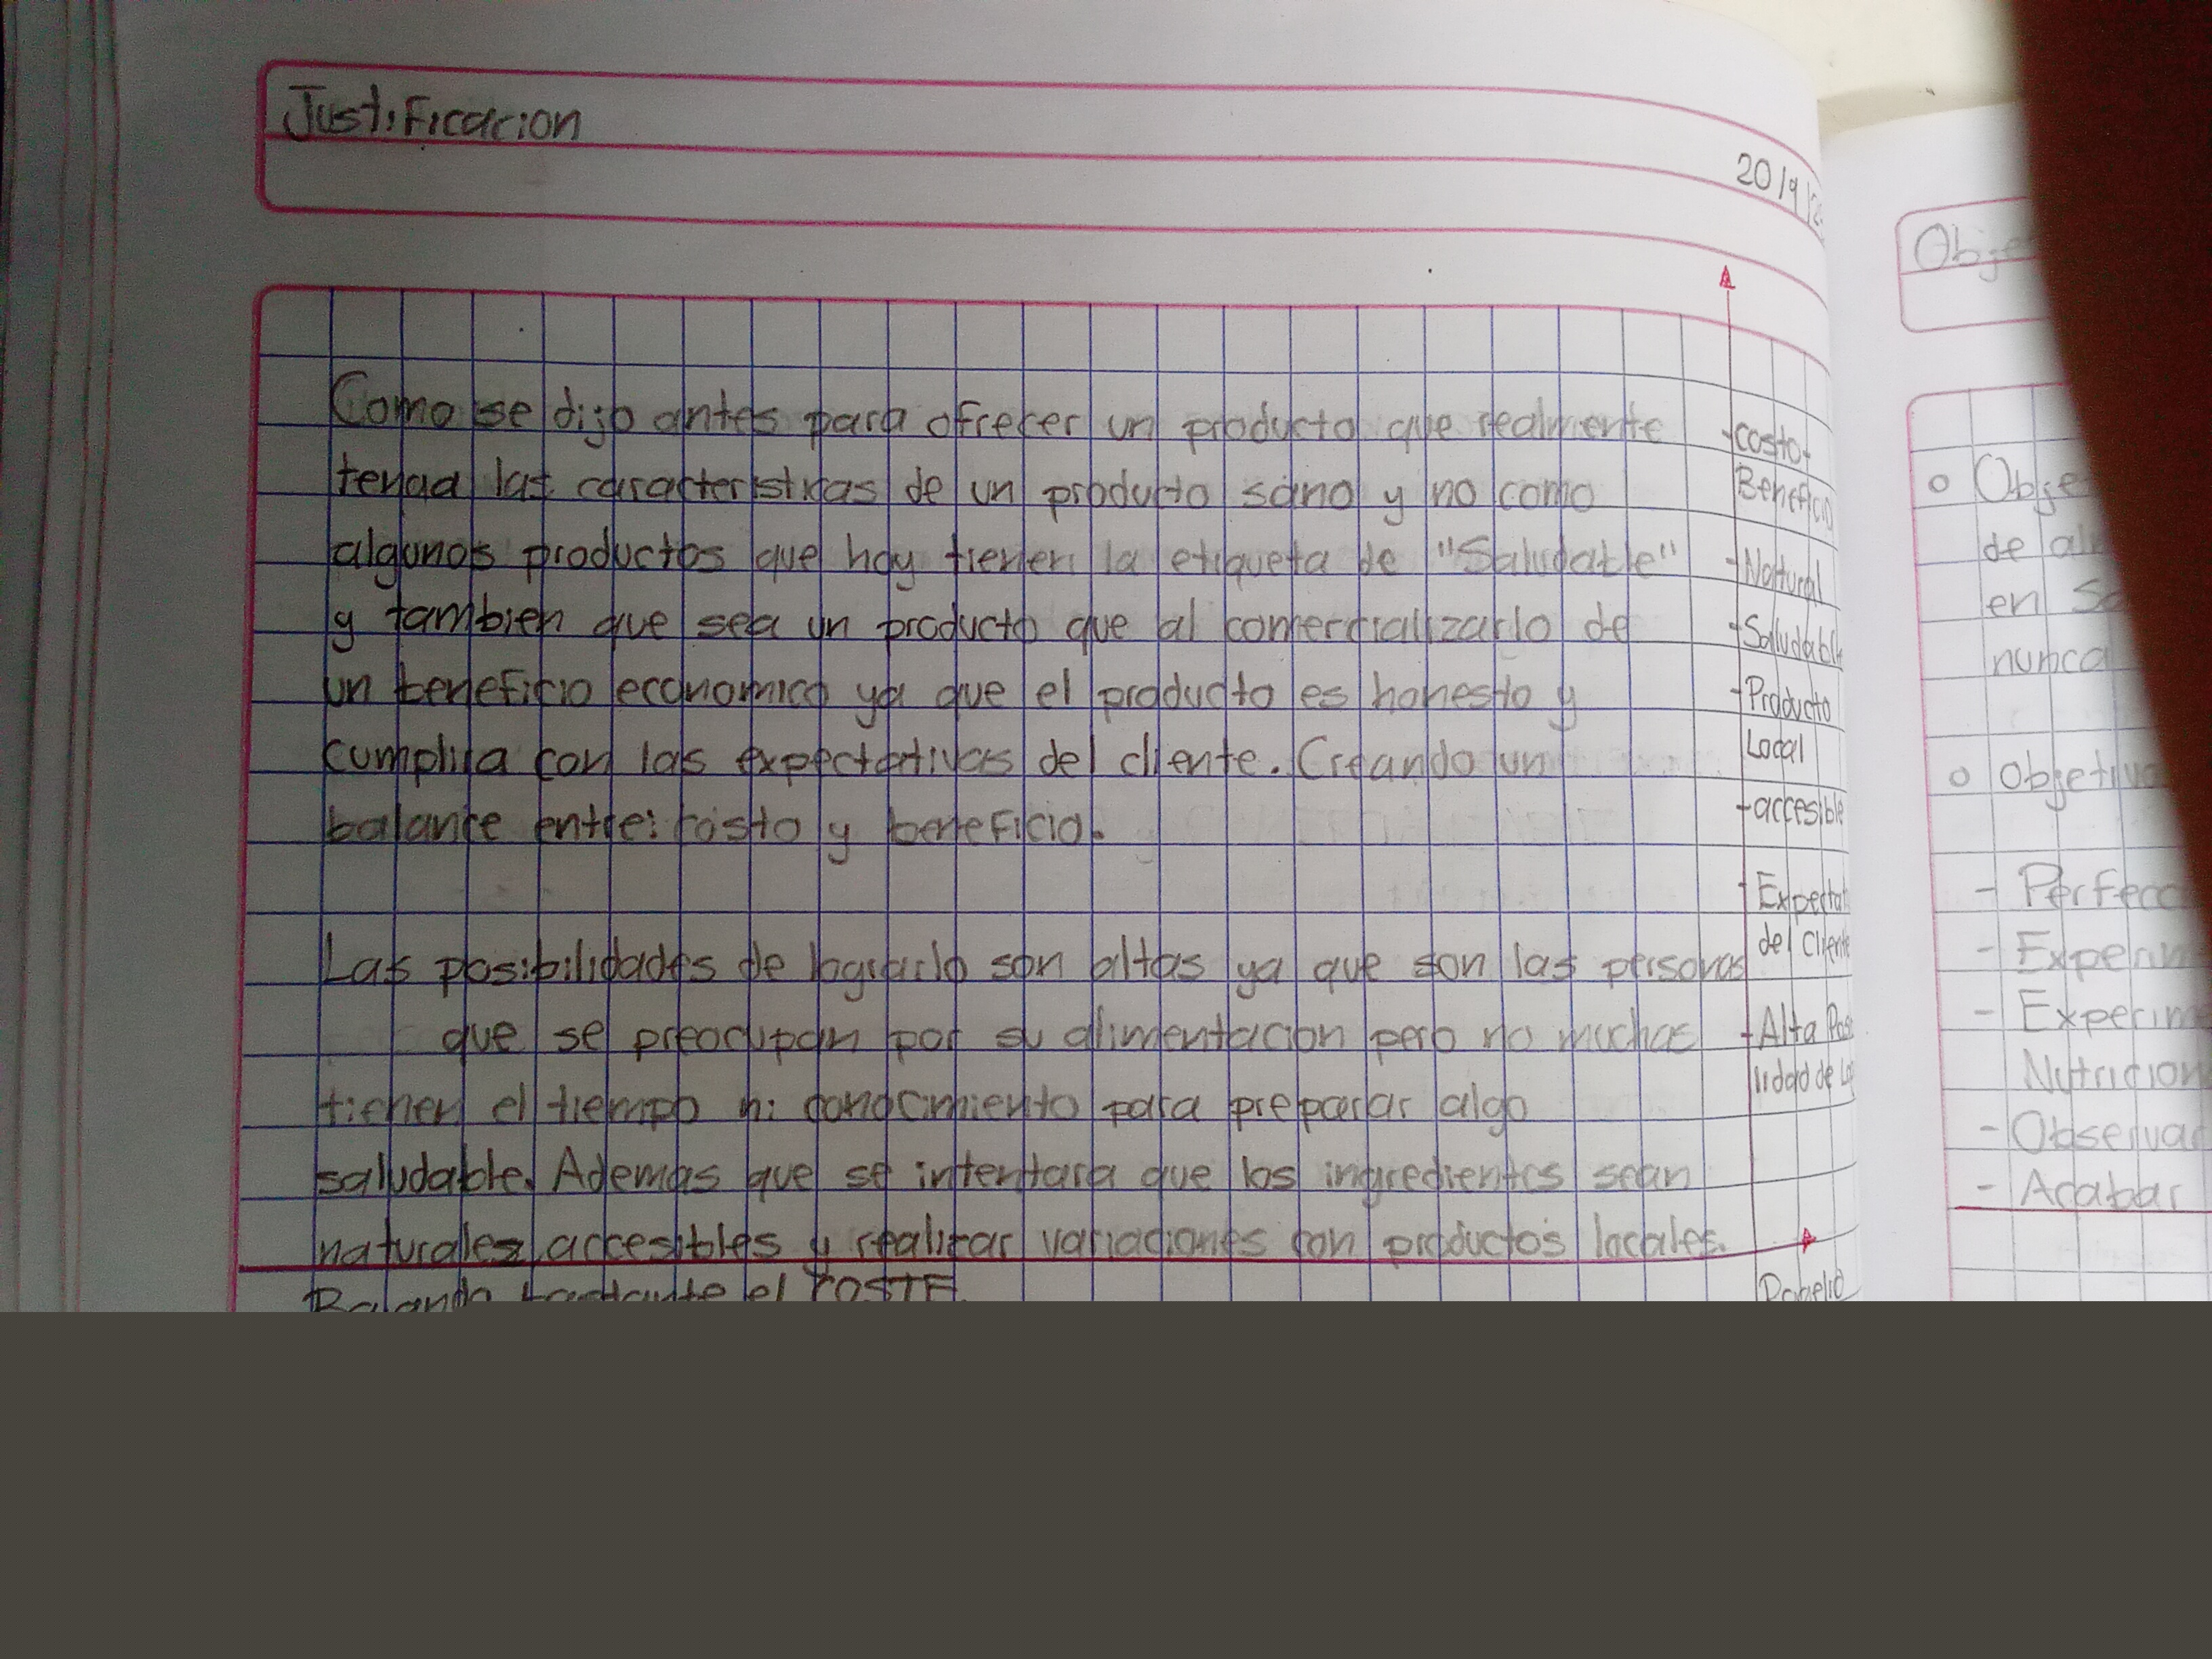 Justificacion
20/9/2
Como se dijo antes para ofrecer un producto que realmente
tenga las caracteristicas de un producto sano y no como
algunos productos que hay tienen la etiqueta de "Saludable"
y tambien que sea un producto que al comercializarlo de
un beneficio economico ya que el producto es honesto y
cumplira con las expectativas del cliente. Creando un
balance entre: costo y beneficio.
Las posibilidades de lograrlo son altas ya que son las personas
que se preocupan por su alimentacion pero no muchas
tienen el tiempo ni conocimiento para preparar algo
saludable. Ademas que se intentara que los ingredientes sean
naturales, accesibles y realizar variaciones con productos locales.
el COSTE
- Costo-
Beneficio
- Natural
- Saludable
- Producto
Local
- accesible
- Expectat
del Cliente
- Alta Posi
lidad de Lo
Obje
o Obje
de al
en Sa
nunca
o Objetivo
- Perfecc
- Experim
- Experim
Nutricion
- Observar
- Acabar